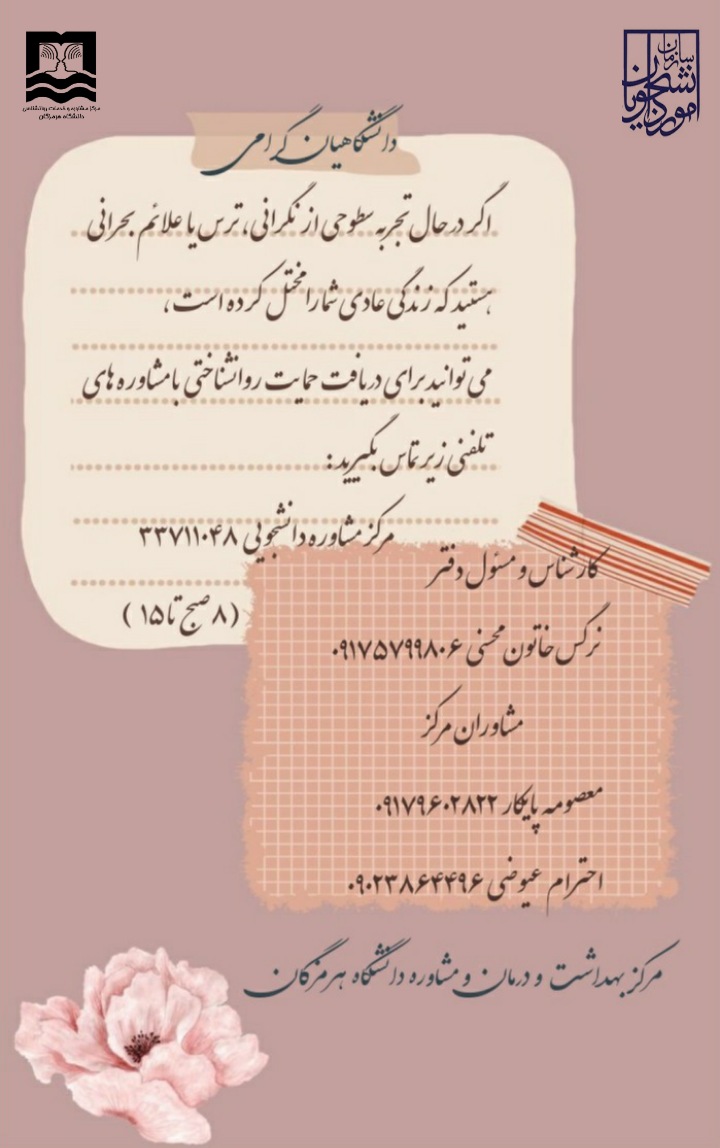 سازمان
امور دانشجویان
مرکز مشاوره و خدمات روانشناختی
دانشگاه هرمزگان
دانشگاهیان گرامی
اگر در حال تجربه سطوحی از نگرانی، ترس یا علائم بحرانی
هستید که زندگی عادی شما را مختل کرده است،
می توانید برای دریافت حمایت روانشناختی با مشاوره های
تلفنی زیر تماس بگیرید:
مرکز مشاوره دانشجویی ۳۳۷۱۱۰۴۸
(۸ صبح تا ۱۵)
کارشناس و مسئول دفتر
نرگس خاتون محسنی ۰۹۱۷۵۷۹۹۸۰۶
مشاوران مرکز
معصومه پایکار ۰۹۱۷۹۶۰۲۸۲۲
احترام عیوضی ۰۹۰۲۳۸۶۴۴۹۶
مرکز بهداشت و درمان و مشاوره دانشگاه هرمزگان